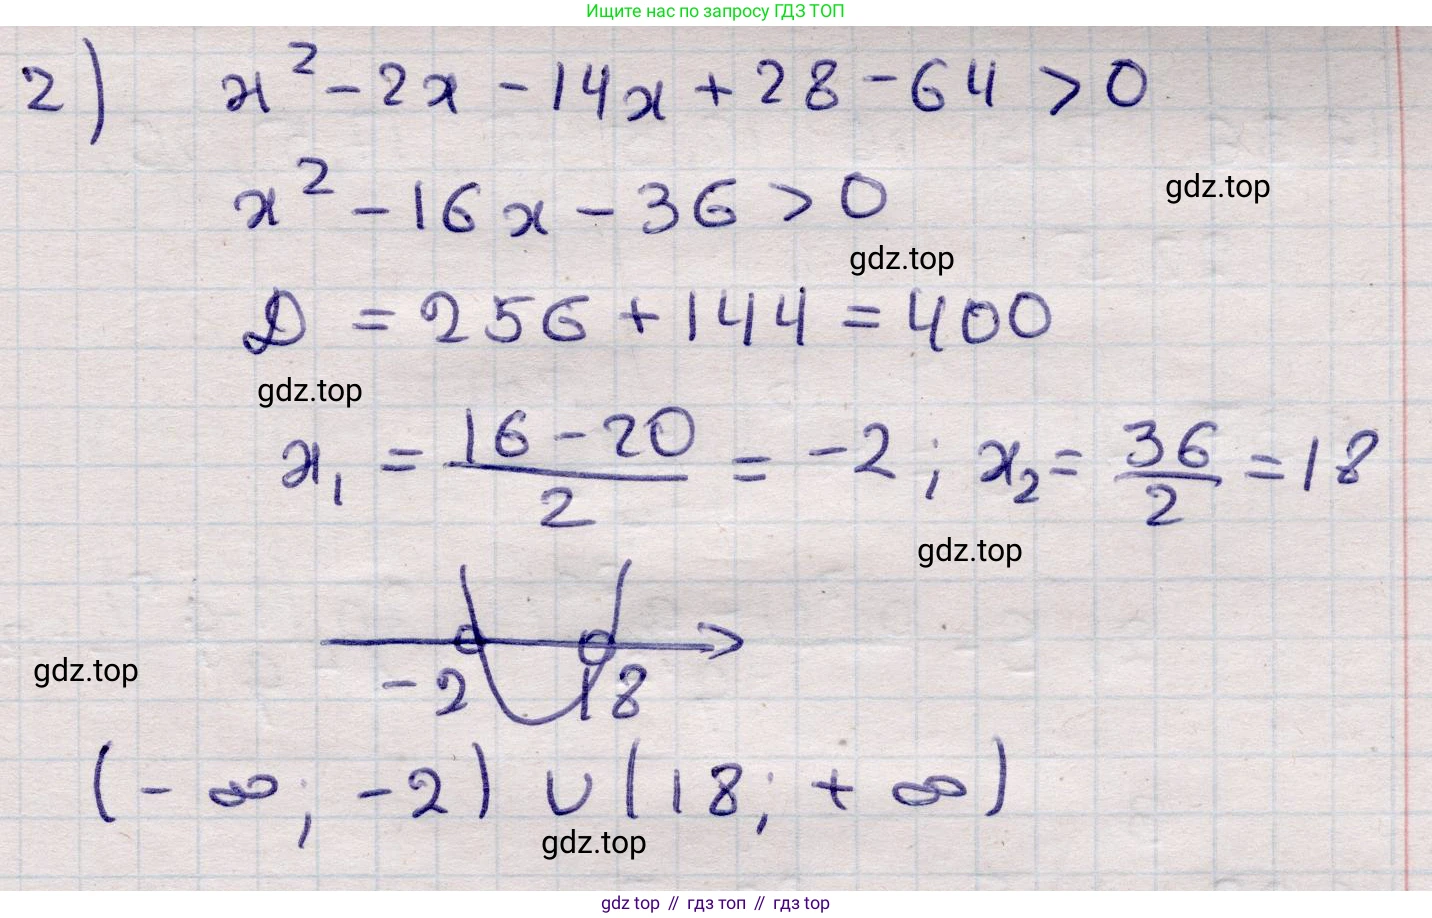 Ищите нас по запросу ГДЗ ТОП
2) x² - 2x - 14x + 28 - 64 > 0
x² - 16x - 36 > 0
gdz.top
gdz.top
D = 256 + 144 = 400
gdz.top
x₁ = (16 - 20)/2 = -2; x₂ = 36/2 = 18
gdz.top
-2 18
gdz.top
(-∞; -2) ∪ (18; +∞)
gdz.top
gdz top // гдз топ // гдз top